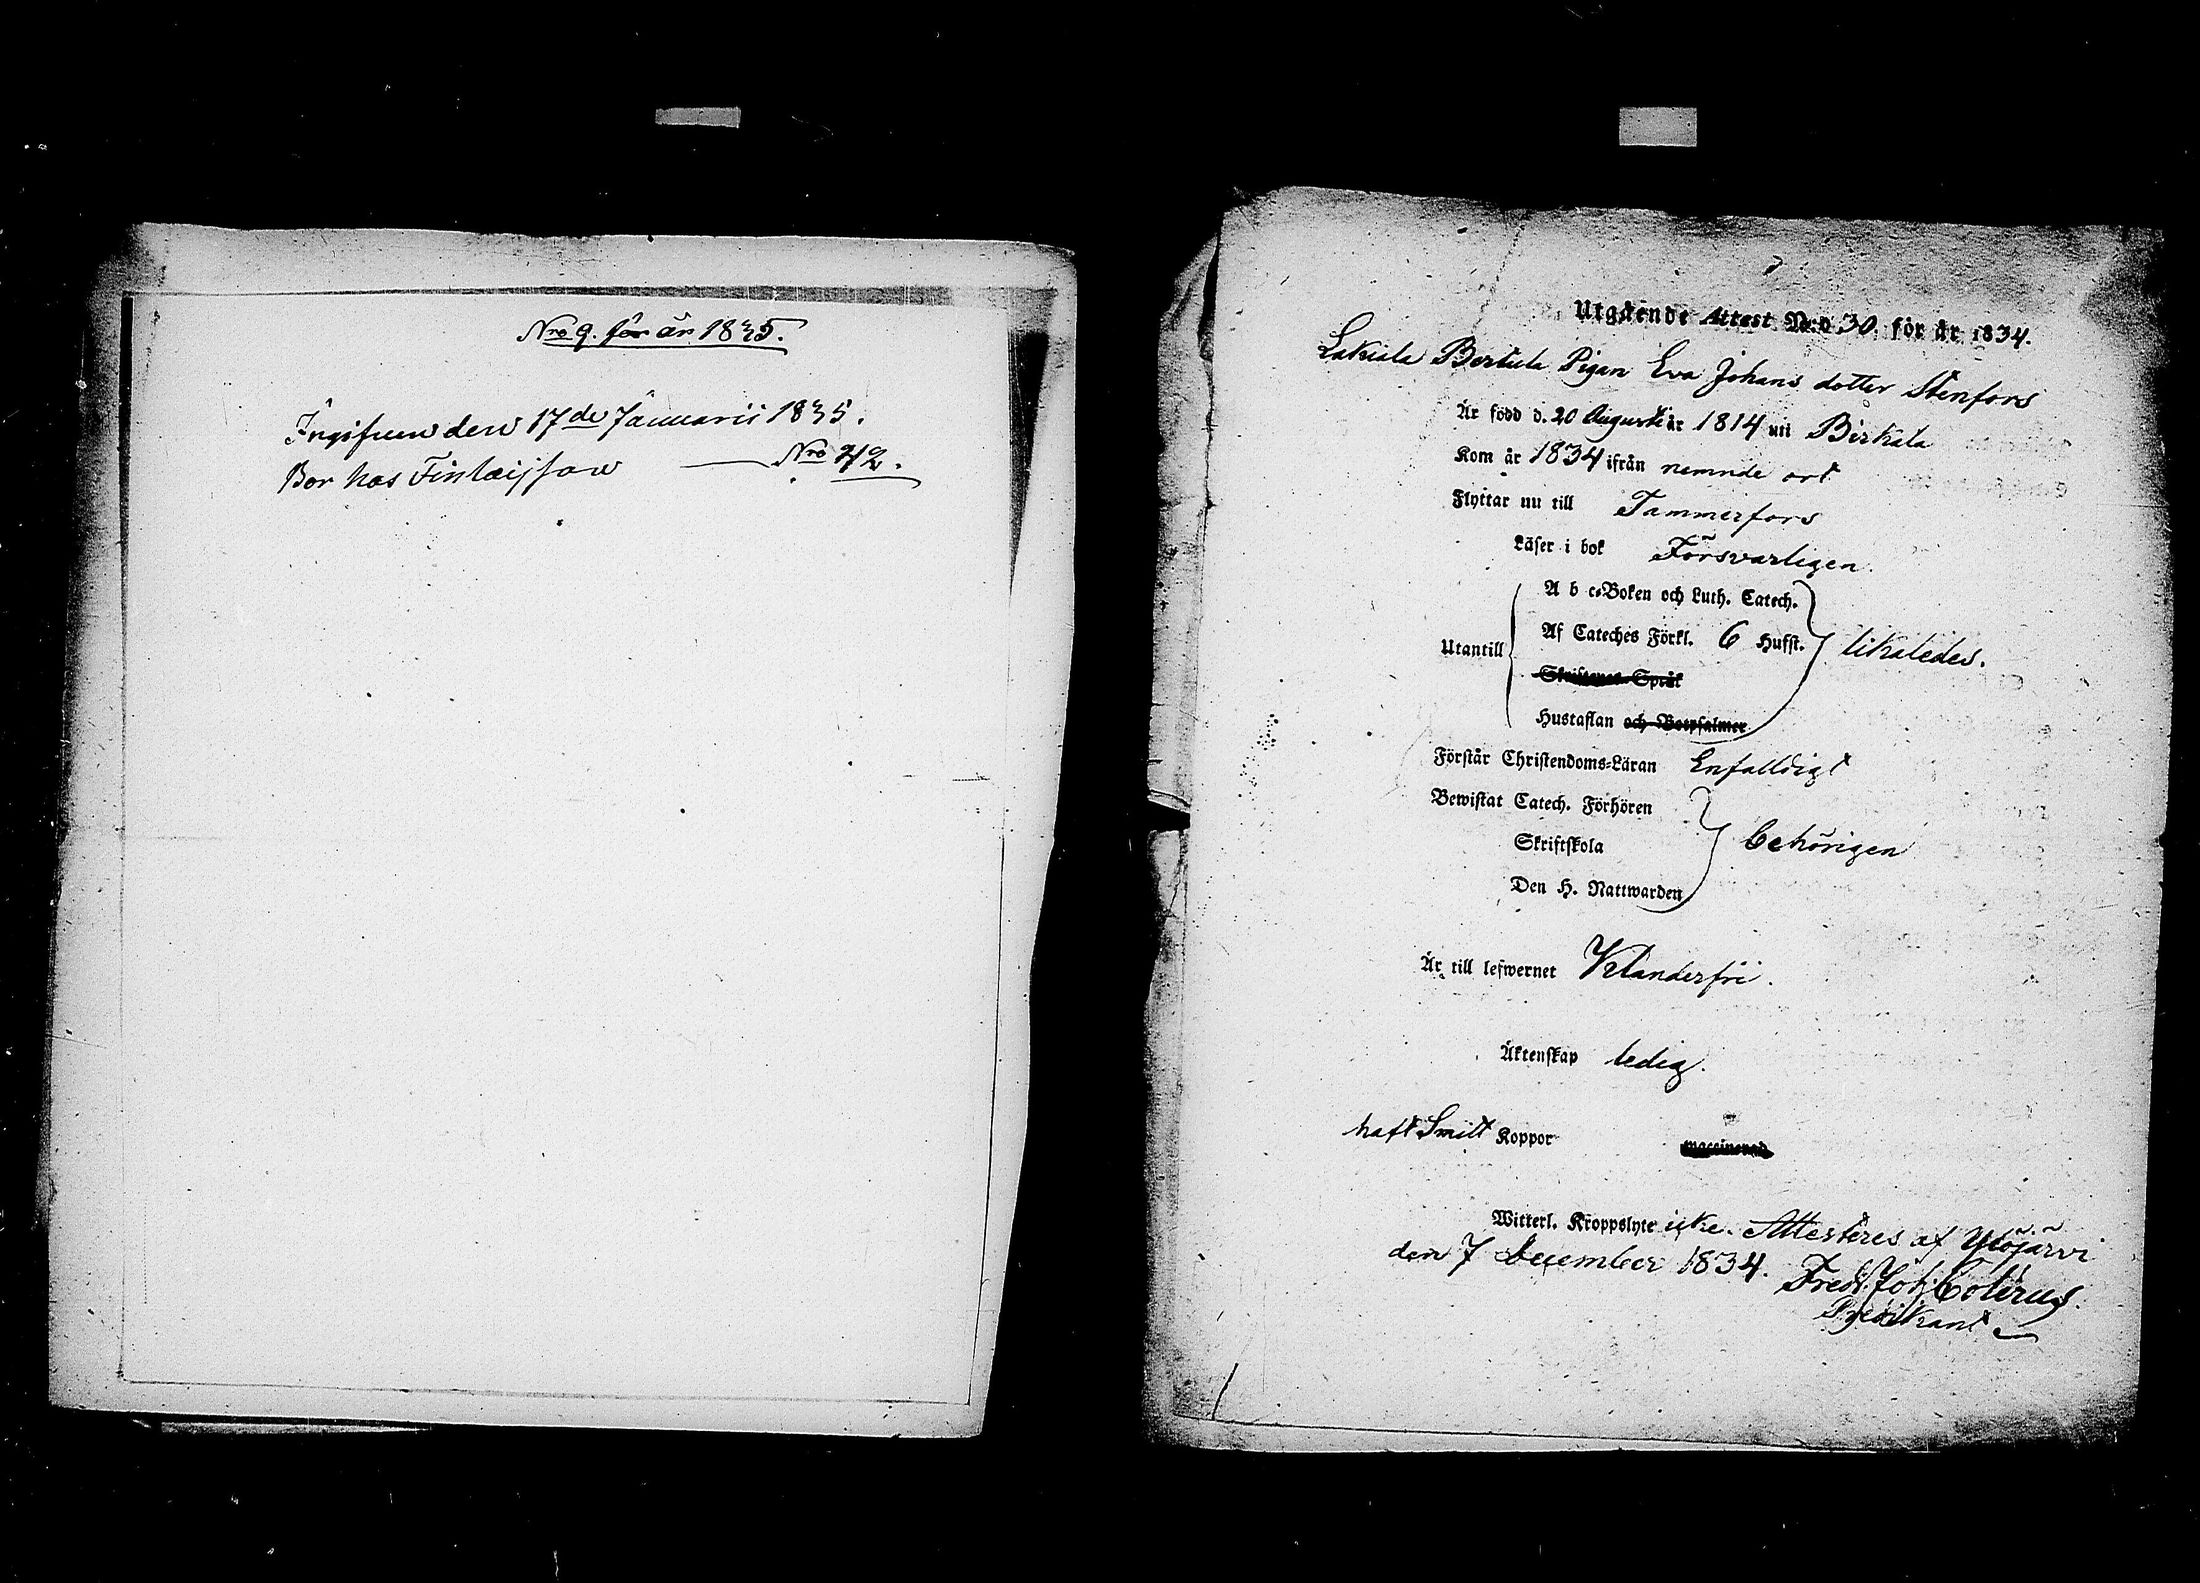 Nro 9. för år 1835.
Ingifven den 17de Januarii 1835.
Bor hos Finlaijson — Nro 42.
Utgående Attest N:o 30 för år 1834.
Lakiala Bertula Pigan Eva Johans dotter Stenfors
Är född d. 20 Augusti år 1814 uti Birkala
Kom år 1834 ifrån nemnde ort
Flyttar nu till Tammerfors
Läser i bok Försvarligen.
A b c-Boken och Luth. Catech.
Utantill Af Cateches Förkl. 6 Hufst. likaledes.
Skriftenes Språk
Hustaflan och Botpsalmer
Förstår Christendoms-Läran Enfalldigt
Bewistat Catech. Förhören
Skriftskola behörigen
Den H. Nattwarden
Är till lefwernet Klanderfri.
Äktenskap ledig.
haft Smitt Koppor vaccinerad
Witterl. Kroppslyte icke. Attesteres af Ylöjärvi
den 7 December 1834. Fredr. Joh. Colerus.
Predikant